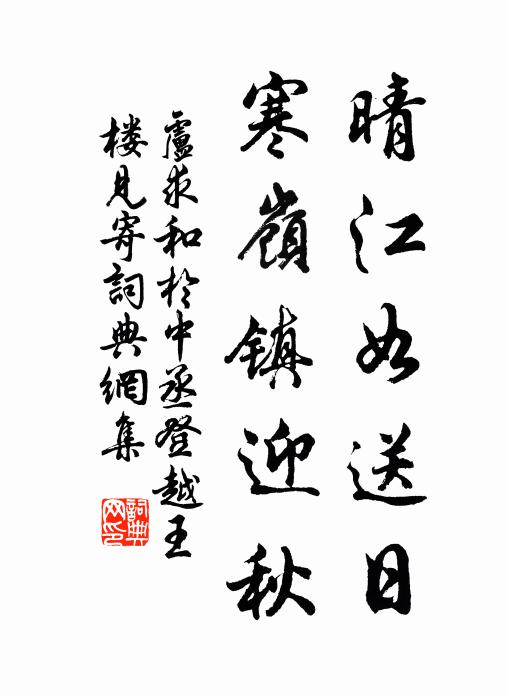 晴江如送日
寒嶺镇迎秋
盧求和於中丞登越王
楼見寄詞典網集
詞典
网印